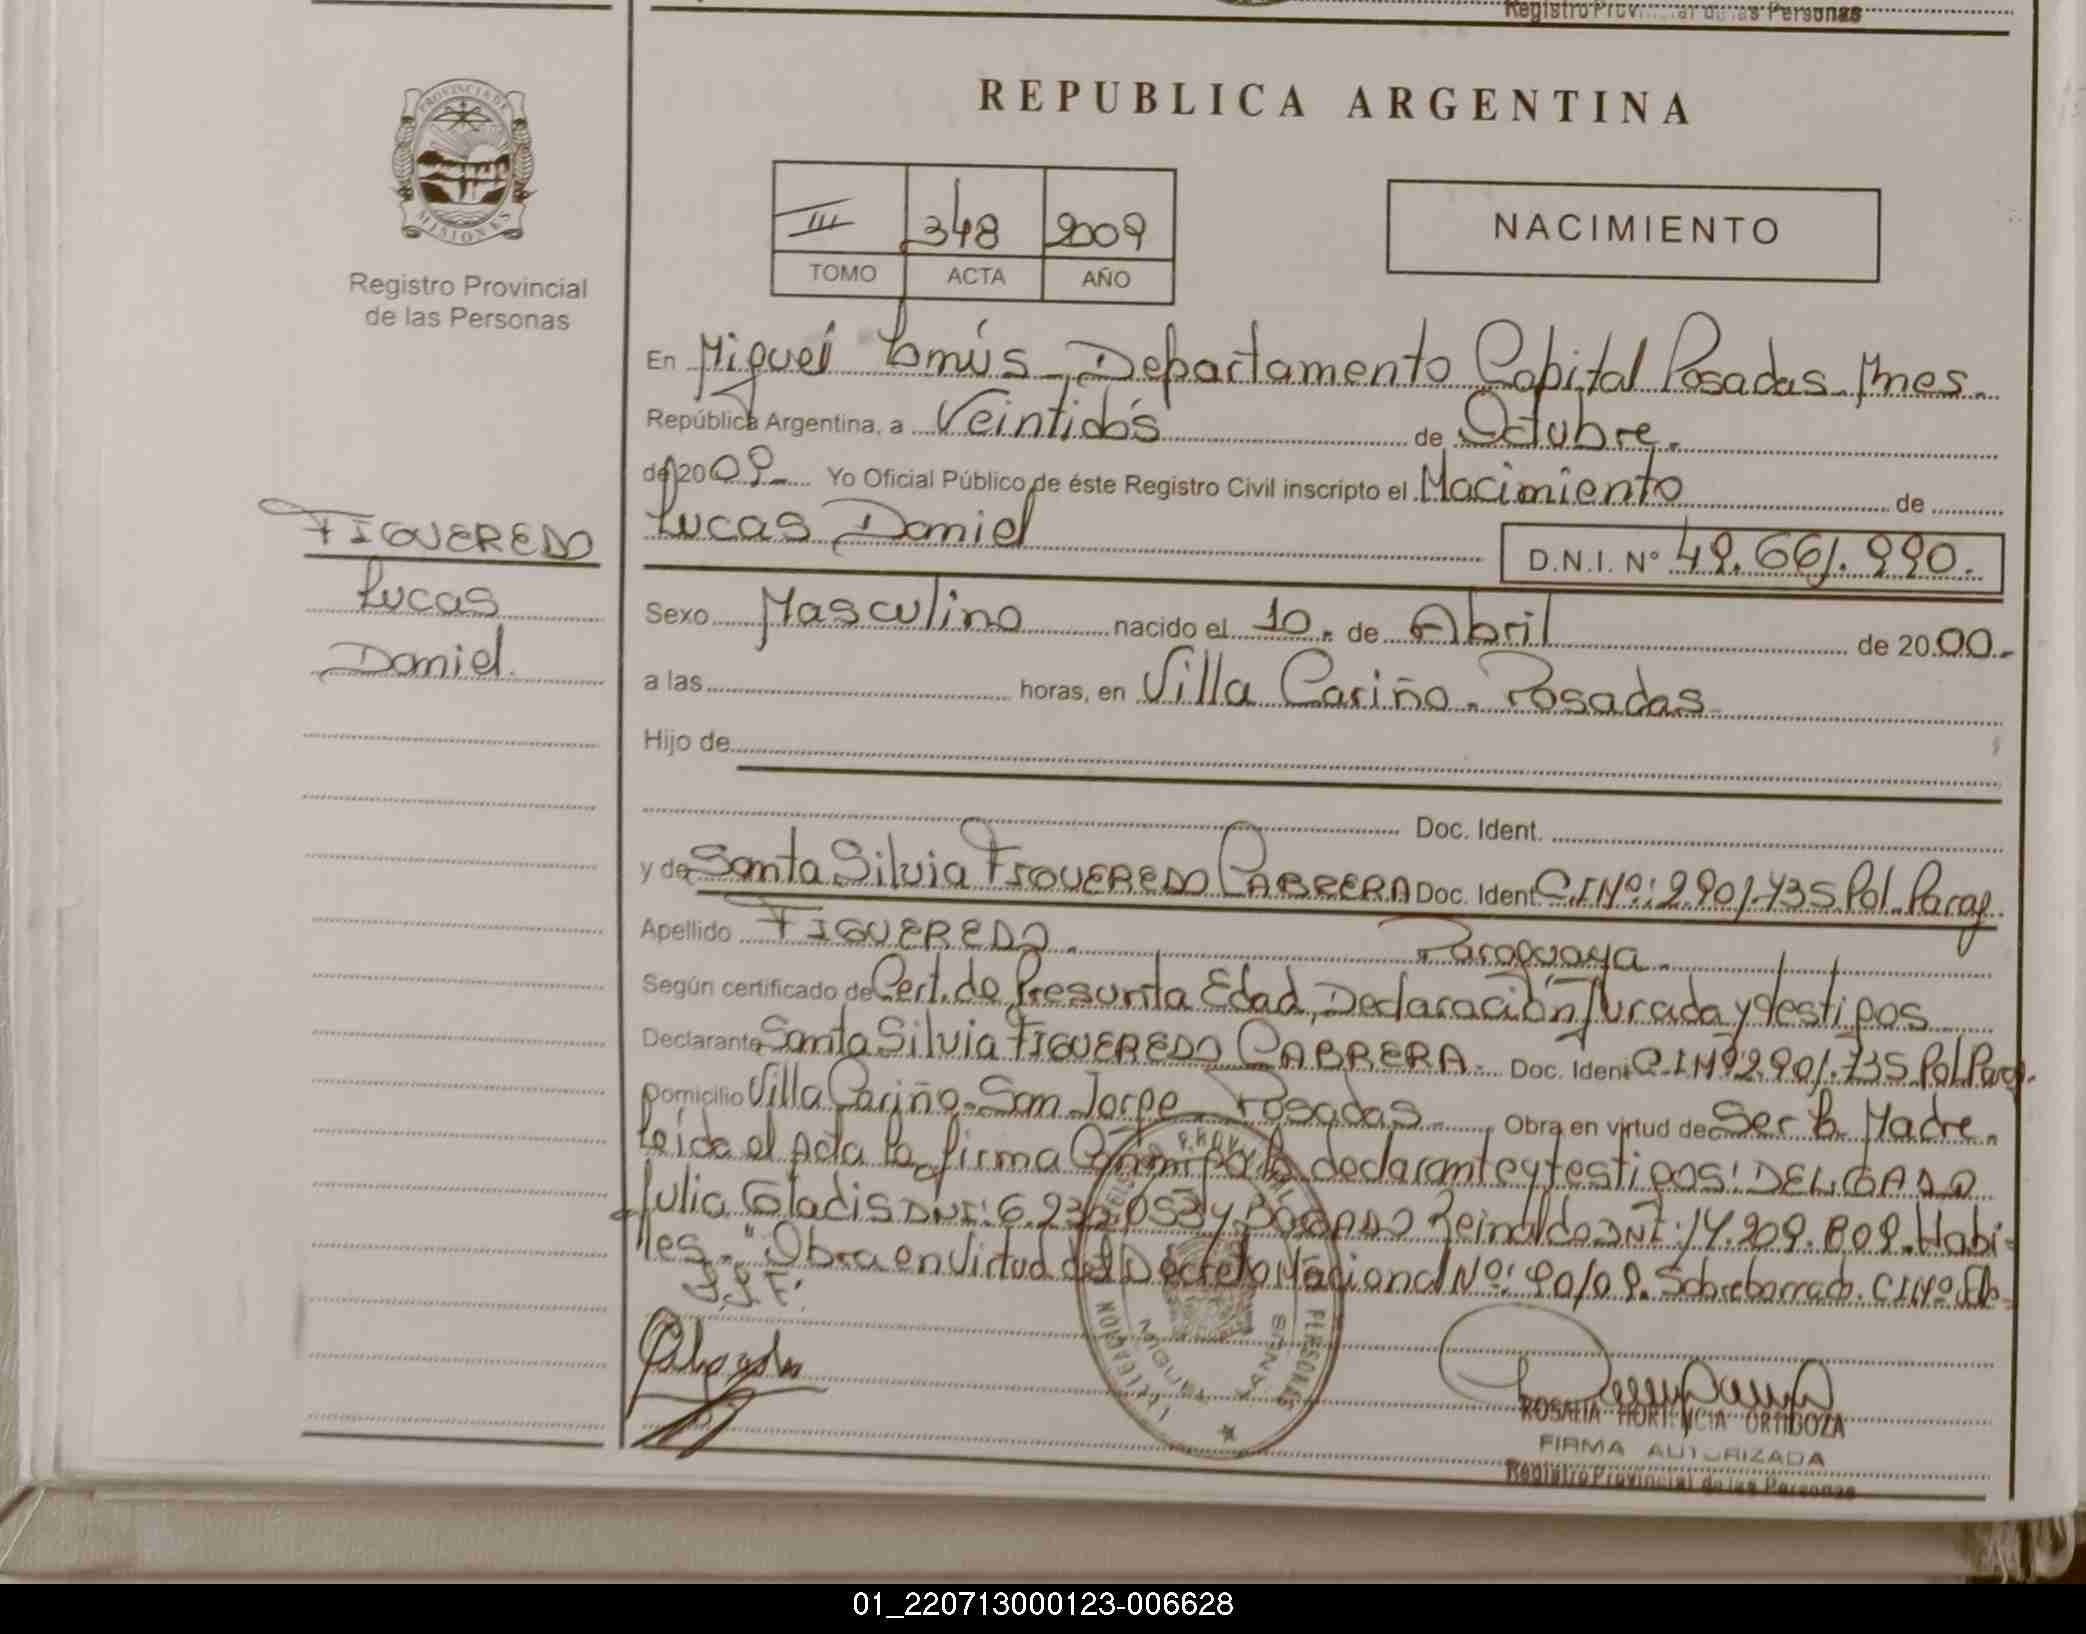 Registro Provincial de las Personas
PROVINCIA DE
MISIONES
Registro Provincial
de las Personas
FIGUEREDO
Lucas
Daniel.
REPUBLICA ARGENTINA
III 348 2009
TOMO ACTA AÑO
NACIMIENTO
En Miguel Lanús - Departamento Capital Posadas - Mnes.
República Argentina, a Veintidós de Octubre.
del 2009 Yo Oficial Público de éste Registro Civil inscripto el Nacimiento de
Lucas Daniel D.N.I. Nº 49.661.990.-
Sexo Masculino nacido el 10.- de Abril de 2000.-
a las horas, en Villa Cariño - Posadas
Hijo de
Doc. Ident.
y de Santa Silvia FIGUEREDO CABRERA Doc. Ident C.I Nº: 2.901.735 Pol. Parag.
Apellido FIGUEREDO. Paraguaya.
Según certificado de Cert. de Presunta Edad, Declaración Jurada y testigos
Declarante Santa Silvia FIGUEREDO CABRERA. Doc. Ident C.I Nº 2.901.735 Pol Parag.
Domicilio Villa Cariño - San Jorge Posadas Obra en virtud de Ser la Madre.
Leída el Acta la firma Conmigo la declarante y testigos: DELGADO
Julia Gladis DNI: 6.232.053 y Reinaldo DNI: 14.209.809. Habi-
les.- "Obra en Virtud del Decreto Nacional Nº: 90/09. Sobreborrado. C.I Nº
ROSALIA HORTENCIA ORTIGOZA
FIRMA AUTORIZADA
Registro Provincial de las Personas
01_220713000123-006628